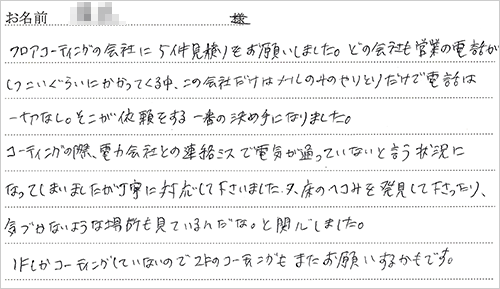 お名前 様
フロアコーティングの会社に5件見積りをお願いしました。どの会社も営業の電話が
しつこいぐらいにかかってくる中、この会社だけはメールのみのやりとりだけで電話は
一切なし。そこが依頼をする一番の決め手になりました。
コーティングの際、電力会社との連絡ミスで電気が通っていないと言う状況に
なってしまいましたが丁寧に対応して下さいました。又、床のヘコみを発見して下さったり、
気づかないような場所も見ているんだな。と関心しました。
1Fしかコーティングしていないので2Fのコーティングもまたお願いするかもです。